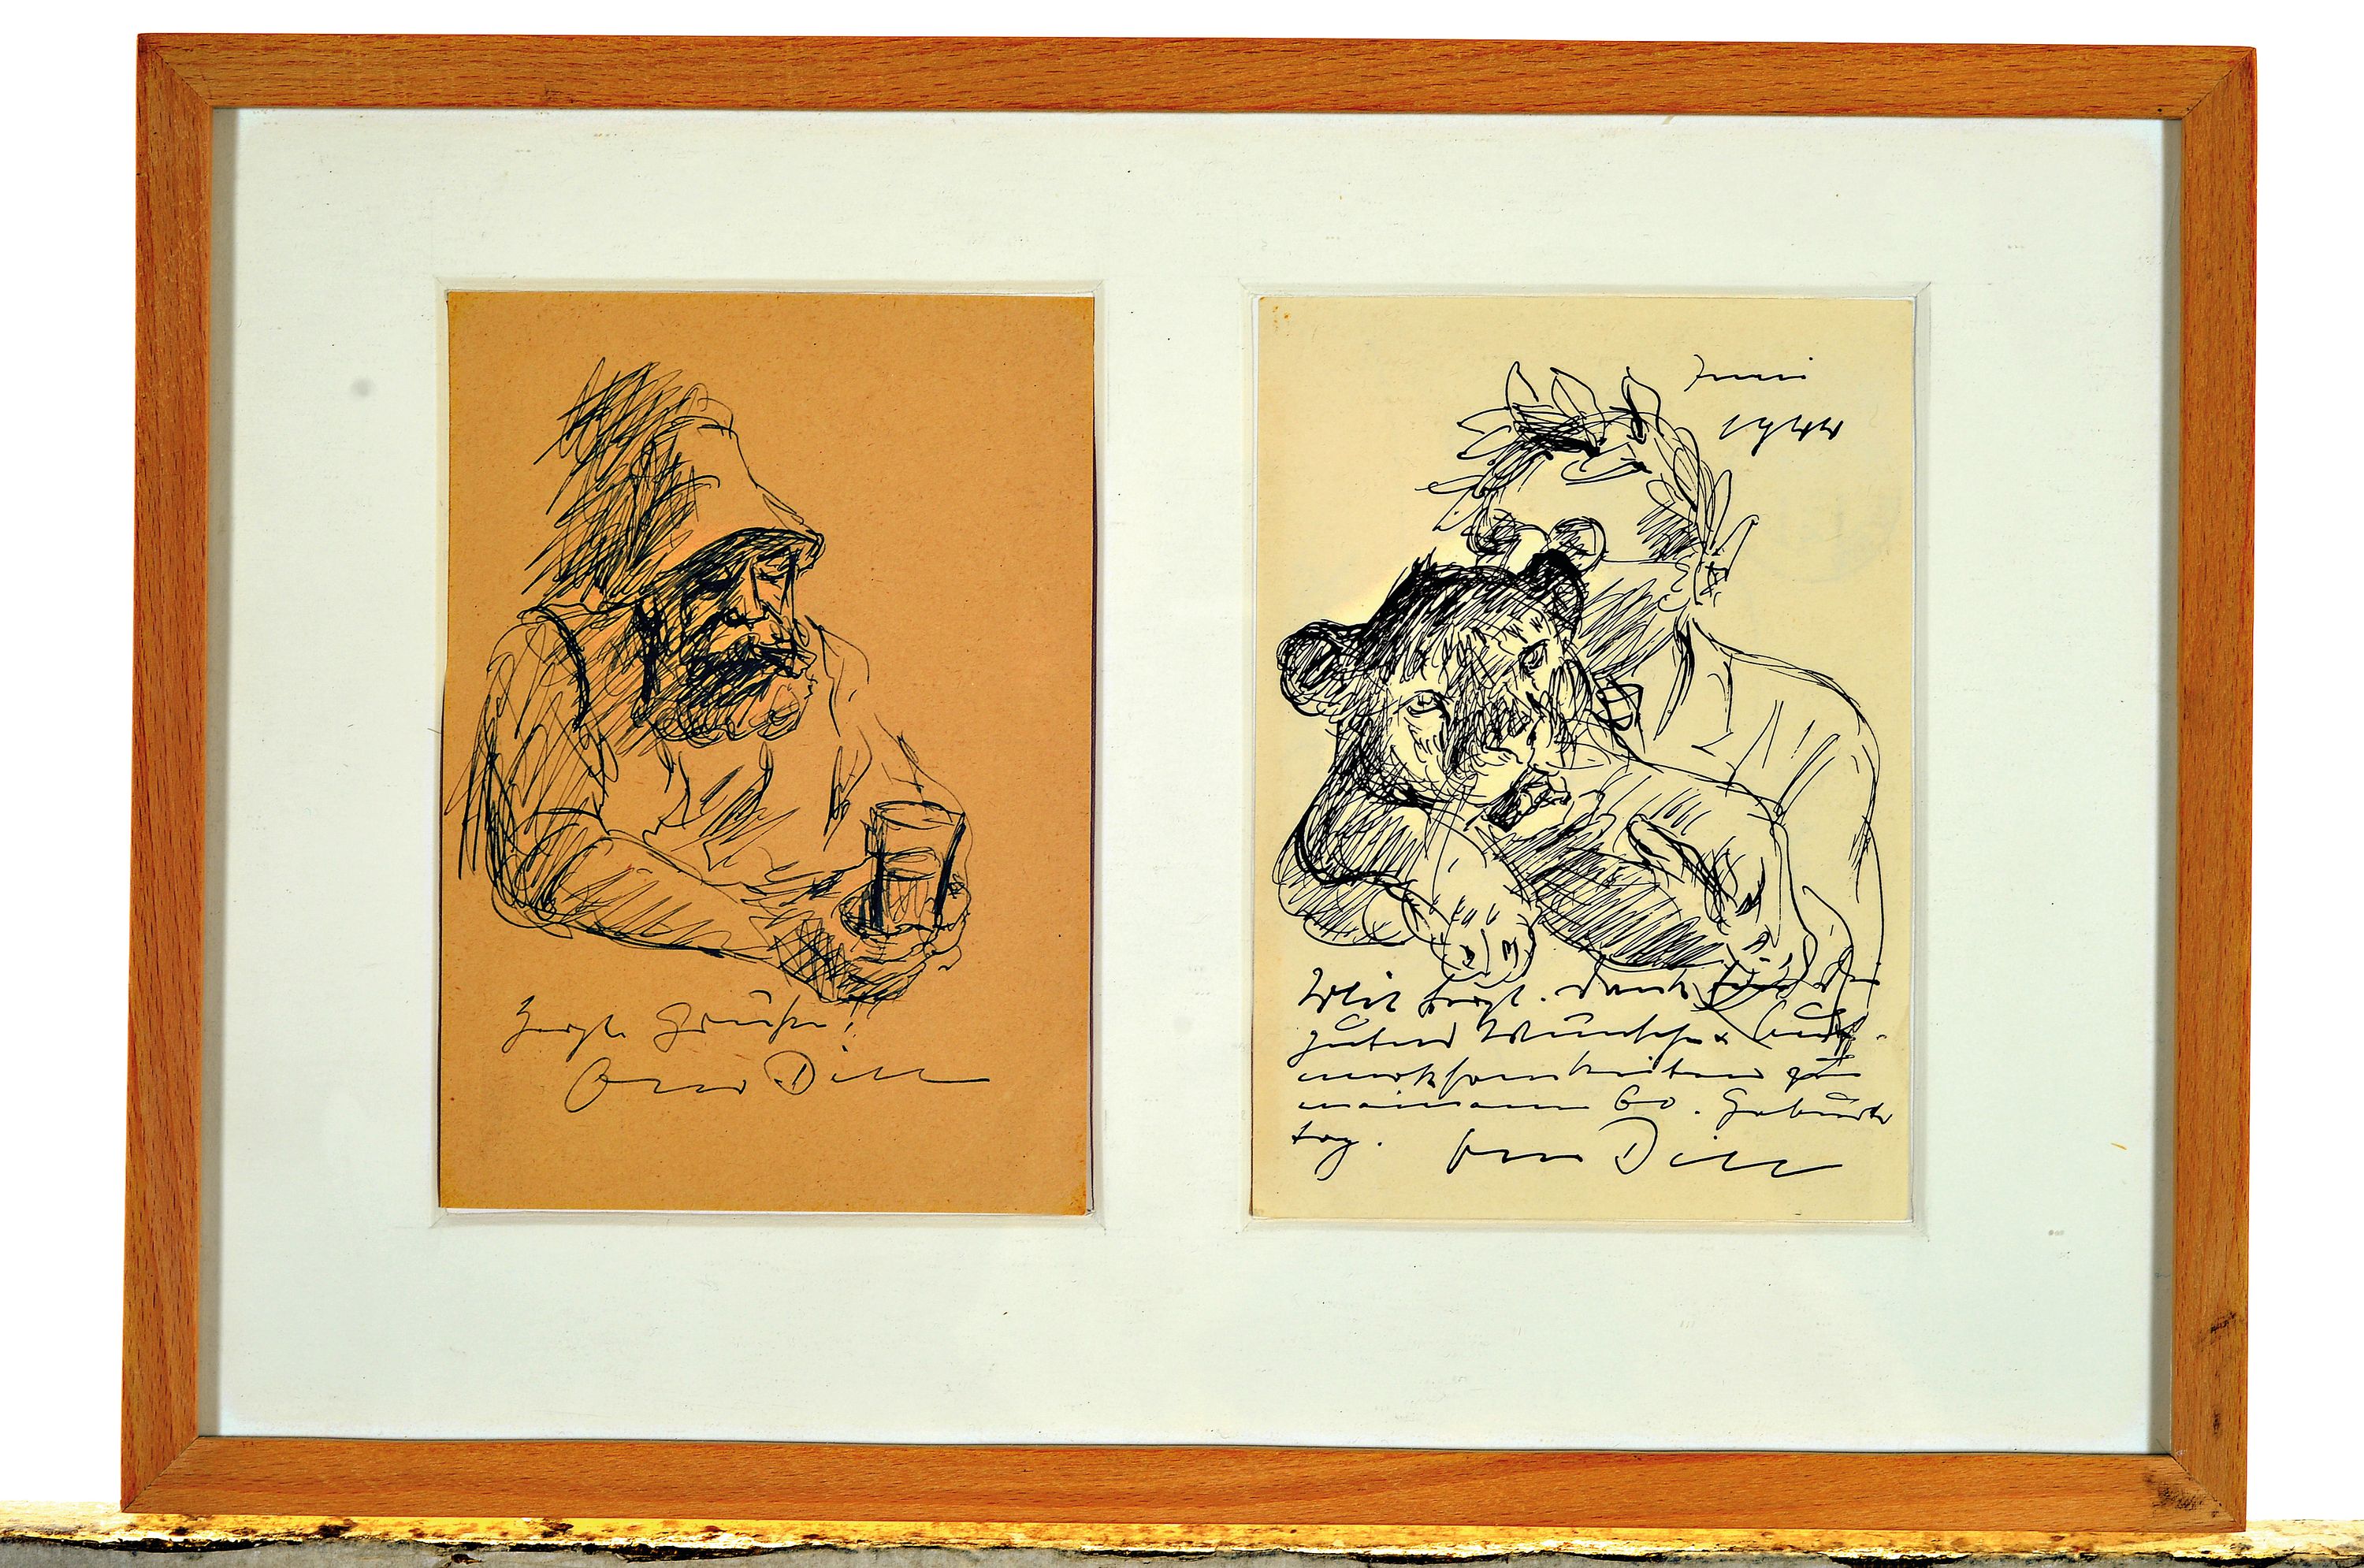 Herzl. Grüße!
Otto Dill
Juni
1944
Mit herzl. Dank für die
guten Wünsche & Auf-
merksamkeiten zu
meinem 60. Geburts
tag. Otto Dill